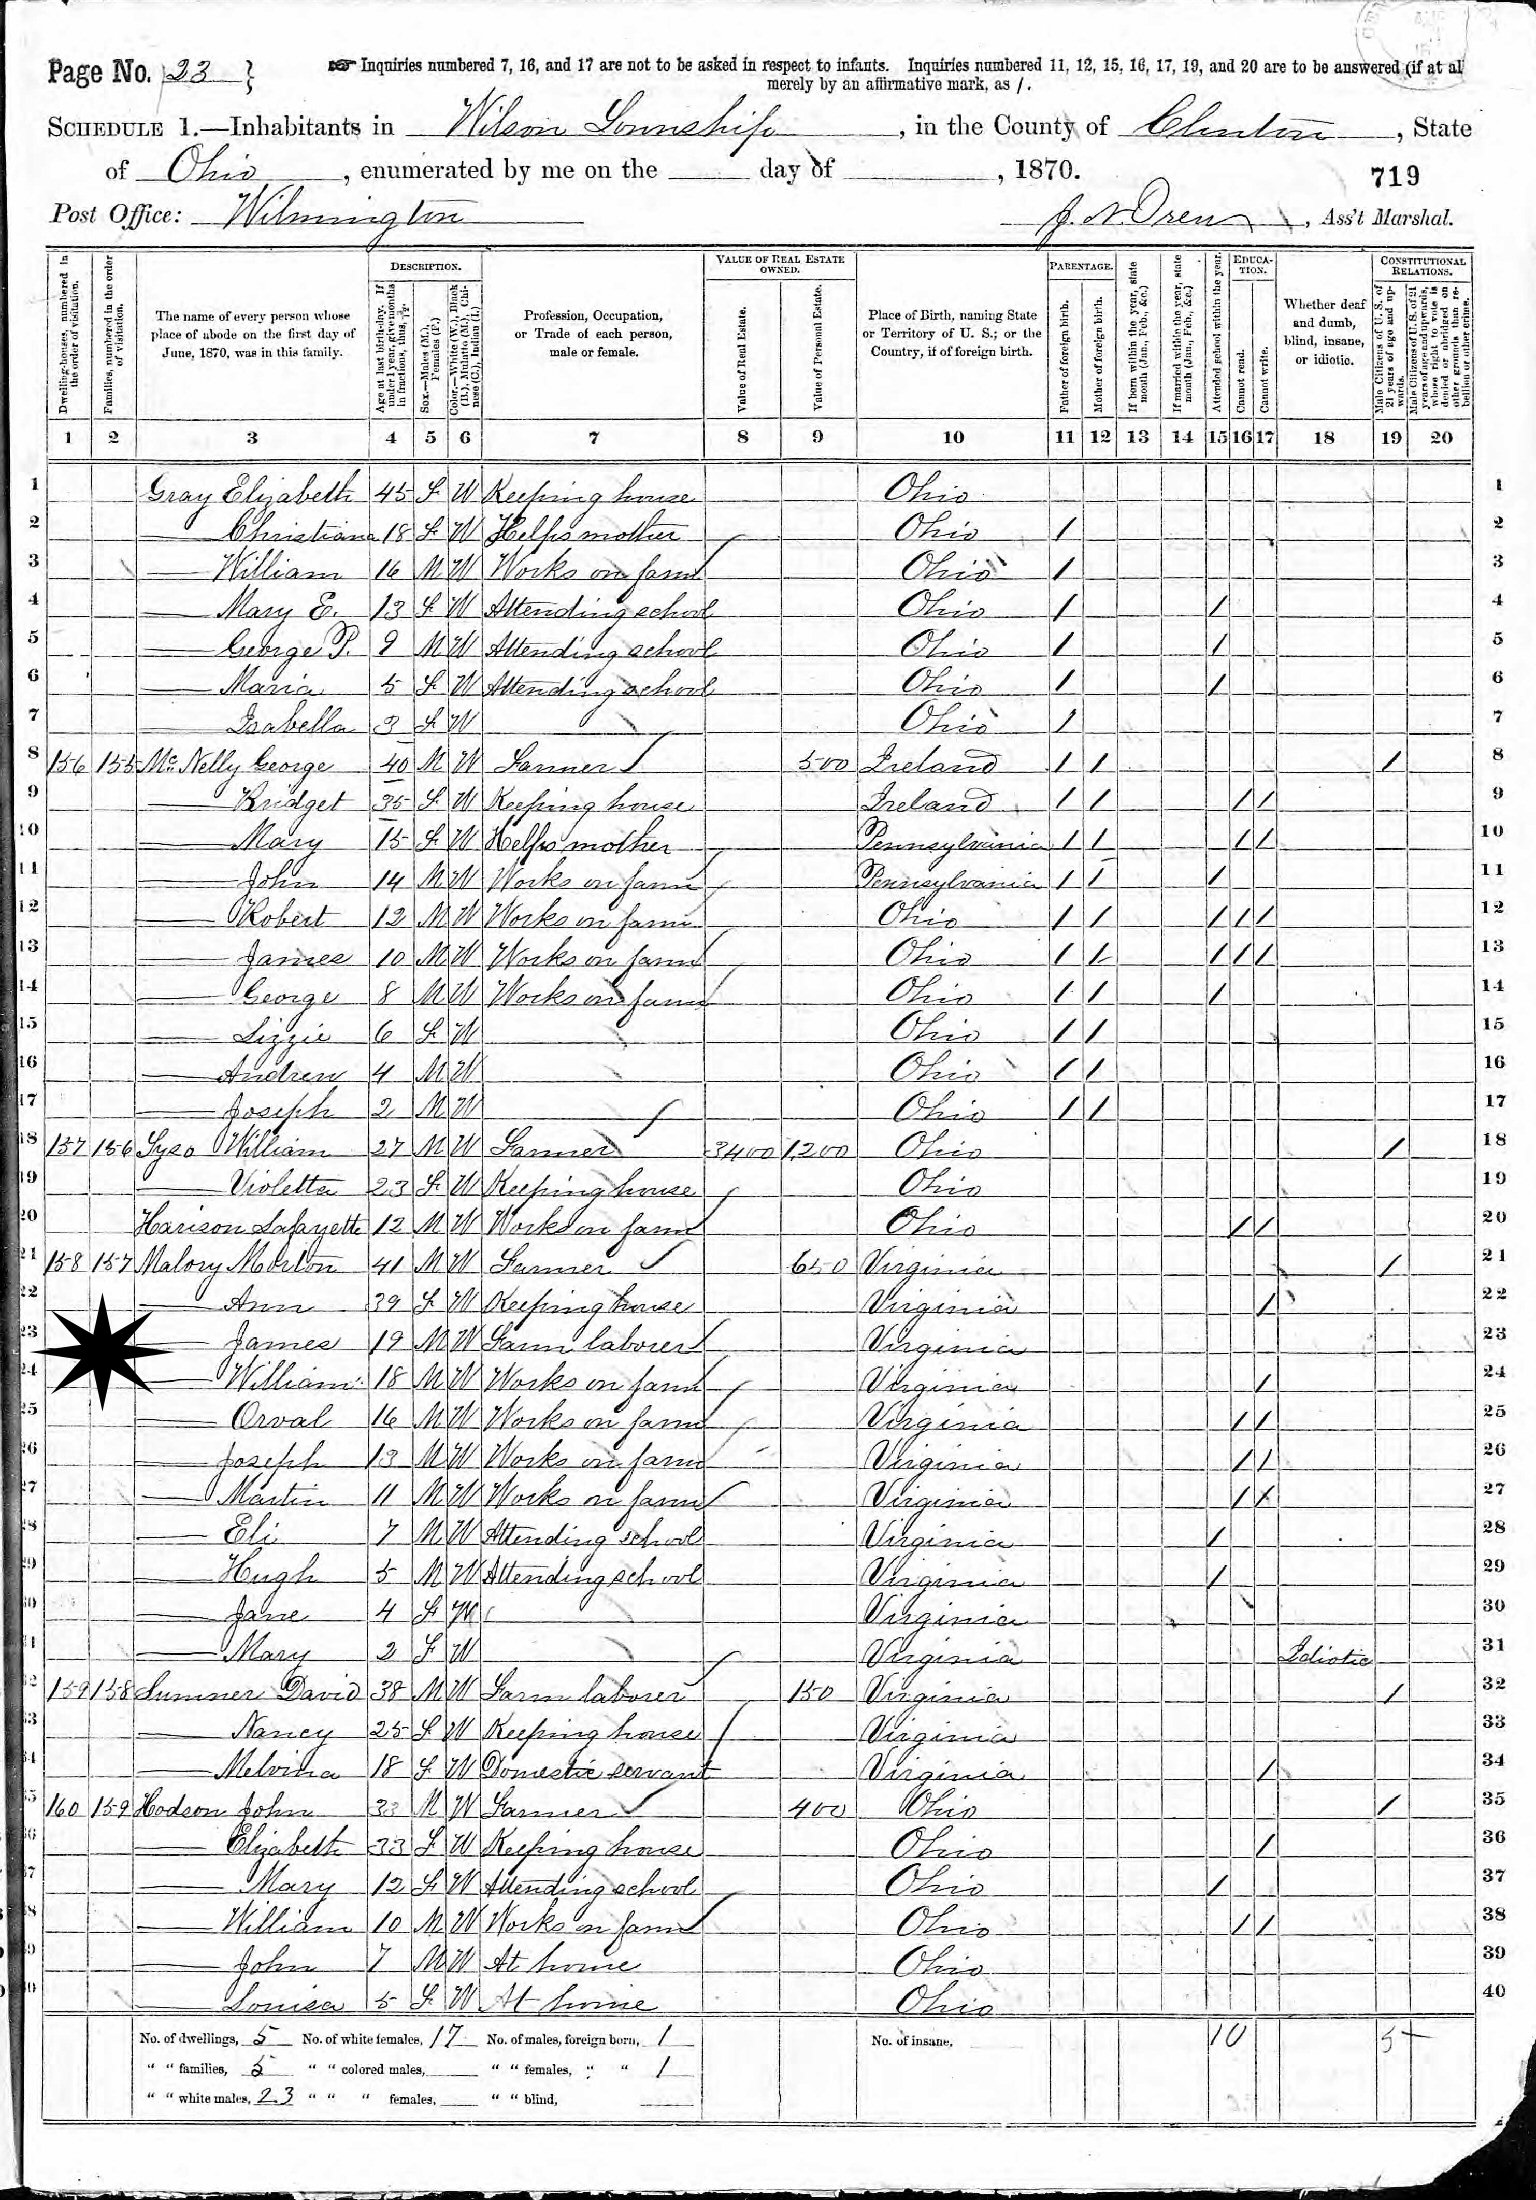 Page No. 23 } ☞ Inquiries numbered 7, 16, and 17 are not to be asked in respect to infants. Inquiries numbered 11, 12, 15, 16, 17, 19, and 20 are to be answered (if at al
merely by an affirmative mark, as /.
SCHEDULE 1.—Inhabitants in Wilson Township, in the County of Clinton, State
of Ohio, enumerated by me on the day of , 1870.
719
Post Office: Wilmington J. N. Oren, Ass't Marshal.
Dwelling-houses, numbered in the order of visitation.
Families, numbered in the order of visitation.
The name of every person whose place of abode on the first day of June, 1870, was in this family.
DESCRIPTION.
Age at last birth-day. If under 1 year, give months in fractions, thus, 3/12
Sex.—Males (M.), Females (F.)
Color.—White (W.), Black (B.), Mulatto (M.), Chinese (C.), Indian (I.)
Profession, Occupation, or Trade of each person, male or female.
VALUE OF REAL ESTATE OWNED.
Value of Real Estate.
Value of Personal Estate.
Place of Birth, naming State or Territory of U. S.; or the Country, if of foreign birth.
PARENTAGE.
Father of foreign birth.
Mother of foreign birth.
If born within the year, state month (Jan., Feb., &c.)
If married within the year, state month (Jan., Feb., &c.)
Attended school within the year.
EDUCATION.
Cannot read.
Cannot write.
Whether deaf and dumb, blind, insane, or idiotic.
CONSTITUTIONAL RELATIONS.
Male Citizens of U. S. of 21 years of age and upwards.
Male Citizens of U. S. of 21 years of age and upwards, whose right to vote is denied or abridged on other grounds than rebellion or other crime.
1 2 3 4 5 6 7 8 9 10 11 12 13 14 15 16 17 18 19 20
1 Gray Elizabeth 45 F W Keeping house Ohio 1
2 — Christiana 18 F W Helps mother Ohio / 2
3 — William 16 M W Works on farm Ohio / 3
4 — Mary E. 13 F W Attending school Ohio / / 4
5 — George P. 9 M W Attending school Ohio / / 5
6 — Maria 5 F W Attending school Ohio / / 6
7 — Isabella 3 F W Ohio / 7
8 156 155 McNelly George 40 M W Farmer 500 Ireland / / / 8
9 — Bridget 35 F W Keeping house Ireland / / / / 9
10 — Mary 15 F W Helps mother Pennsylvania / / / / 10
11 — John 14 M W Works on farm Pennsylvania / / / 11
12 — Robert 12 M W Works on farm Ohio / / / / / 12
13 — James 10 M W Works on farm Ohio / / / / / 13
14 — George 8 M W Works on farm Ohio / / / 14
15 — Lizzie 6 F W Ohio / / 15
16 — Andrew 4 M W Ohio / / 16
17 — Joseph 2 M W Ohio / / 17
18 157 156 Syso William 27 M W Farmer 3400 1200 Ohio / 18
19 — Violetta 23 F W Keeping house Ohio 19
20 Harison Lafayette 12 M W Works on farm Ohio / / 20
21 158 157 Malory Morton 41 M W Farmer 650 Virginia / 21
22 — Ann 39 F W Keeping house Virginia / 22
23 — James 19 M W Farm laborer Virginia 23
24 — William 18 M W Works on farm Virginia / 24
25 — Orval 16 M W Works on farm Virginia / / 25
26 — Joseph 13 M W Works on farm Virginia / / 26
27 — Martin 11 M W Works on farm Virginia / / 27
28 — Eli 7 M W Attending school Virginia / 28
29 — Hugh 5 M W Attending school Virginia / 29
30 — Jane 4 F W Virginia 30
31 — Mary 2 F W Virginia Idiotic 31
32 159 158 Sumner David 38 M W Farm laborer 150 Virginia / 32
33 — Nancy 25 F W Keeping house Virginia 33
34 — Melvina 18 F W Domestic servant Virginia / 34
35 160 159 Hodson John 33 M W Farmer 400 Ohio / 35
36 — Elizabeth 33 F W Keeping house Ohio / 36
37 — Mary 12 F W Attending school Ohio / 37
38 — William 10 M W Works on farm Ohio / / 38
39 — John 7 M W At home Ohio 39
40 — Louisa 5 F W At home Ohio 40
No. of dwellings, 5 No. of white females, 17 No. of males, foreign born, 1 No. of insane, 10 5
" " families, 5 " " colored males, " " females, " " 1
" " white males, 23 " " " females, " " blind,